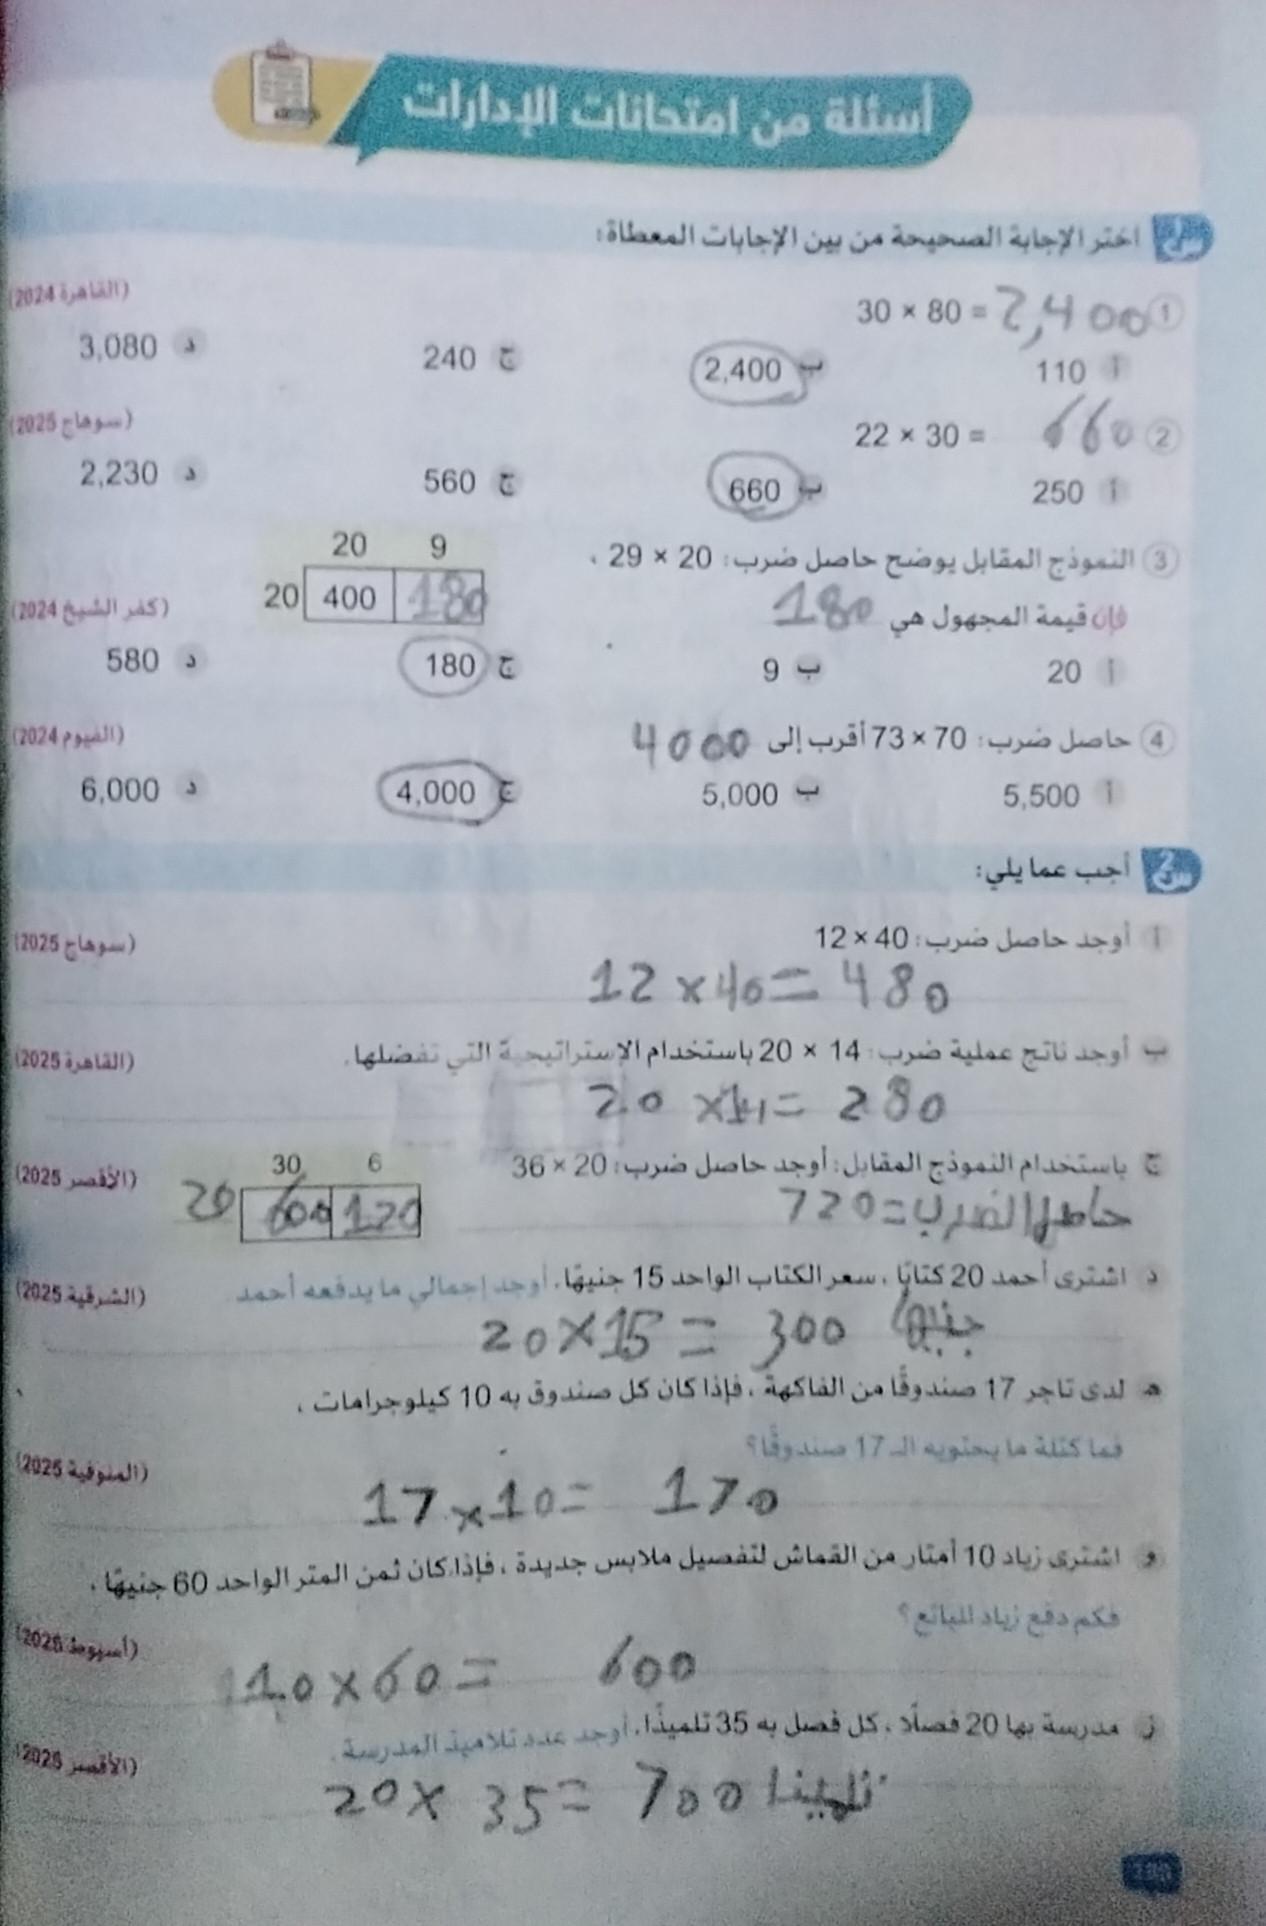 أسئلة من امتحانات الإدارات
س1 اختر الإجابة الصحيحة من بين الإجابات المعطاة:
1 30 × 80 = 2,400 (القاهرة 2024)
أ 110 ب 2,400 ج 240 د 3,080
2 22 × 30 = 660 (سوهاج 2025)
أ 250 ب 660 ج 560 د 2,230
3 النموذج المقابل يوضح حاصل ضرب: 20 × 29 ،
20 9
20 400 180
فإن قيمة المجهول هي 180 (كفر الشيخ 2024)
أ 20 ب 9 ج 180 د 580
4 حاصل ضرب: 70 × 73 أقرب إلى 4000 (الفيوم 2024)
أ 5,500 ب 5,000 ج 4,000 د 6,000
س2 أجب عما يلي:
أ أوجد حاصل ضرب: 40 × 12 (سوهاج 2025)
12 × 40 = 480
ب أوجد ناتج عملية ضرب: 14 × 20 باستخدام الإستراتيجية التي تفضلها. (القاهرة 2025)
20 × 14 = 280
ج باستخدام النموذج المقابل: أوجد حاصل ضرب: 20 × 36 (الأقصر 2025)
30 6
20 600 120
حاصل الضرب = 720
د اشترى أحمد 20 كتابًا، سعر الكتاب الواحد 15 جنيهًا. أوجد إجمالي ما يدفعه أحمد (الشرقية 2025)
20 × 15 = 300 جنيها
هـ لدى تاجر 17 صندوقًا من الفاكهة، فإذا كان كل صندوق به 10 كيلوجرامات،
فما كتلة ما يحتويه الـ 17 صندوقًا؟ (المنوفية 2025)
17 × 10 = 170
و اشترى زياد 10 أمتار من القماش لتفصيل ملابس جديدة، فإذا كان ثمن المتر الواحد 60 جنيهًا،
فكم دفع زياد للبائع؟ (أسيوط 2025)
10 × 60 = 600
ز مدرسة بها 20 فصلًا، كل فصل به 35 تلميذًا. أوجد عدد تلاميذ المدرسة. (الأقصر 2025)
20 × 35 = 700 تلميذا